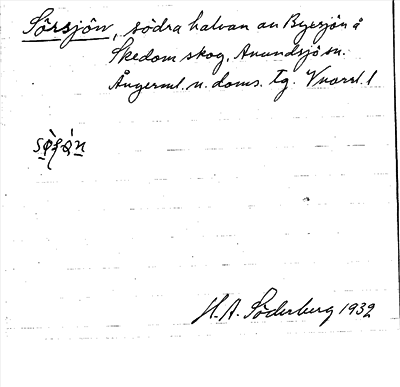 Sörsjön, södra halvan av Byesjön å
Skedom skog, Anundsjö sn.
Ångerml. n. doms. tg.
H. A. Söderberg 1932